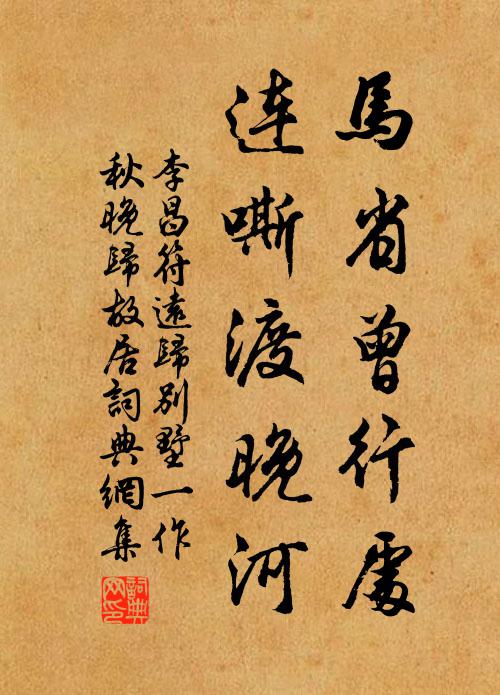 馬省曾行處
連嘶渡晚河
李昌符遠歸別墅一作
秋晚歸故居詞典網集
詞典
网印